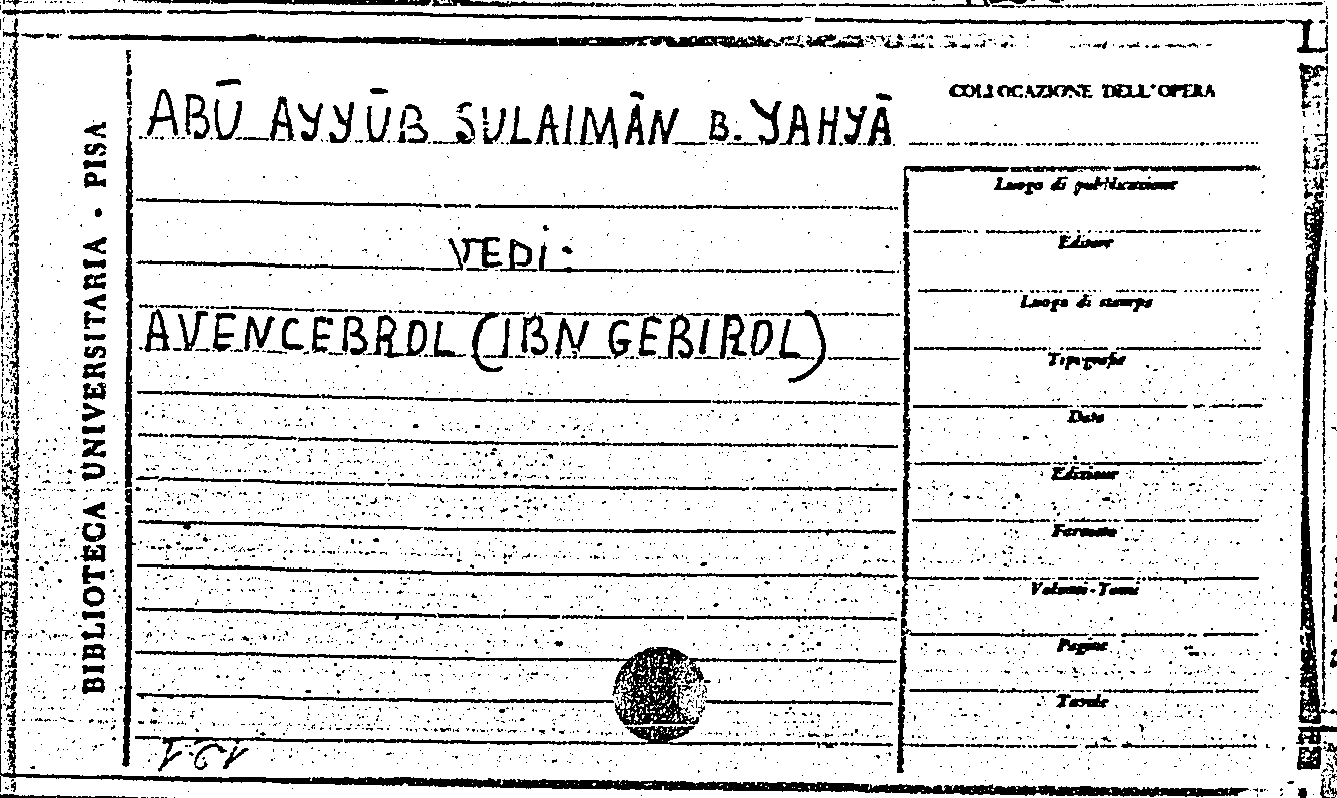 ABŪ AYYŪB SULAIMĀN B. YAHYĀ
VEDI:
AVENCEBROL (IBN GEBIROL)
BIBLIOTECA UNIVERSITARIA - PISA
COLLOCAZIONE DELL'OPERA
Luogo di pubblicazione
Editore
Luogo di stampa
Tipografia
Data
Edizione
Formato
Volumi-Tomi
Pagine
Tavole